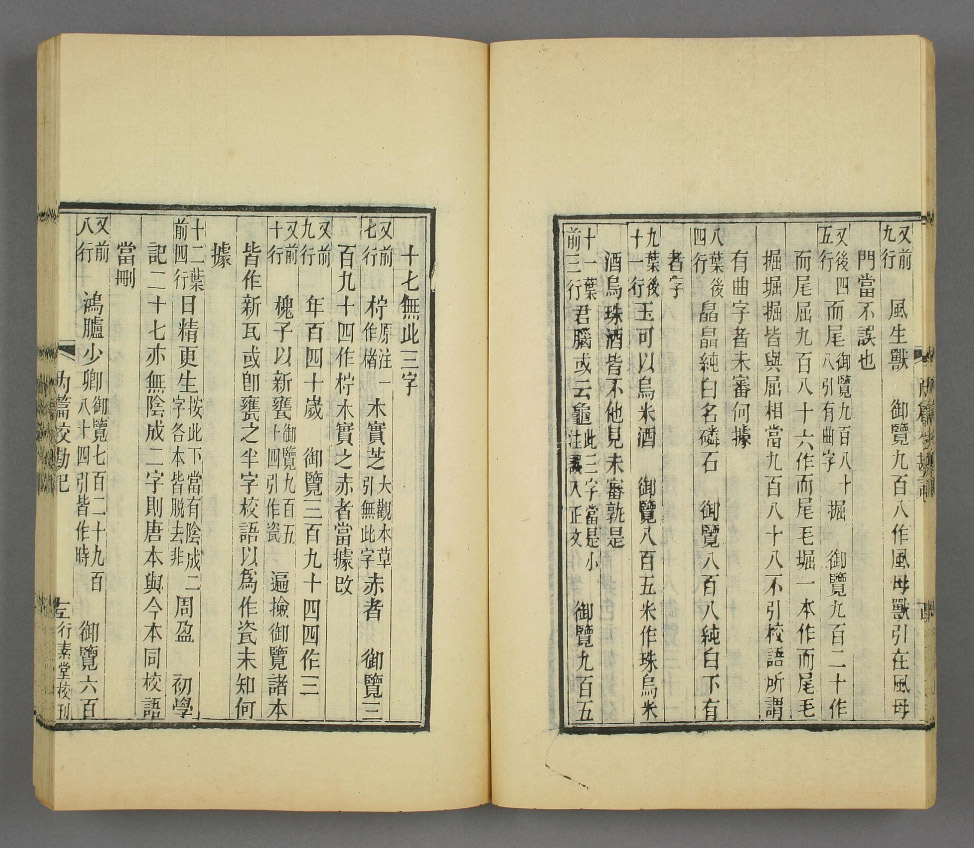 又前九行 風生獸 御覽九百八作風母獸引在風母
門當不誤也
又後四五行而尾御覽九百八十八引有曲字掘 御覽九百二十作
而尾屈九百八十六作而尾毛堀一本作而尾毛
掘堀掘皆與屈相當九百八十八不引校語所謂
有曲字者未審何據
八葉後四行晶晶純白名磷石 御覽八百八純白下有
者字
九葉後十一行玉可以烏米酒 御覽八百五米作珠烏米
酒烏珠酒皆不他見未審孰是
十一葉前三行君腦或云龜此三字當是小注誤入正文 御覽九百五
十七無此三字
又前七行柠原注一作楮木實芝大觀本草引無此字赤者 御覽三
百九十四作柠木實之赤者當據改
又前九行 年百四十歲 御覽三百九十四四作三
又前十行 槐子以新甕御覽九百五十四引作瓷 遍撿御覽諸本
皆作新瓦或卽甕之半字校語以爲作瓷未知何
據
十二葉前四行日精更生按此下當有陰成二字各本皆脫去非周盈 初學
記二十七亦無陰成二字則唐本與今本同校語
當刪
又前八行 鴻臚少卿御覽七百二十九百八十四引皆作時 御覽六百
內篇校勘記
行素堂校刊